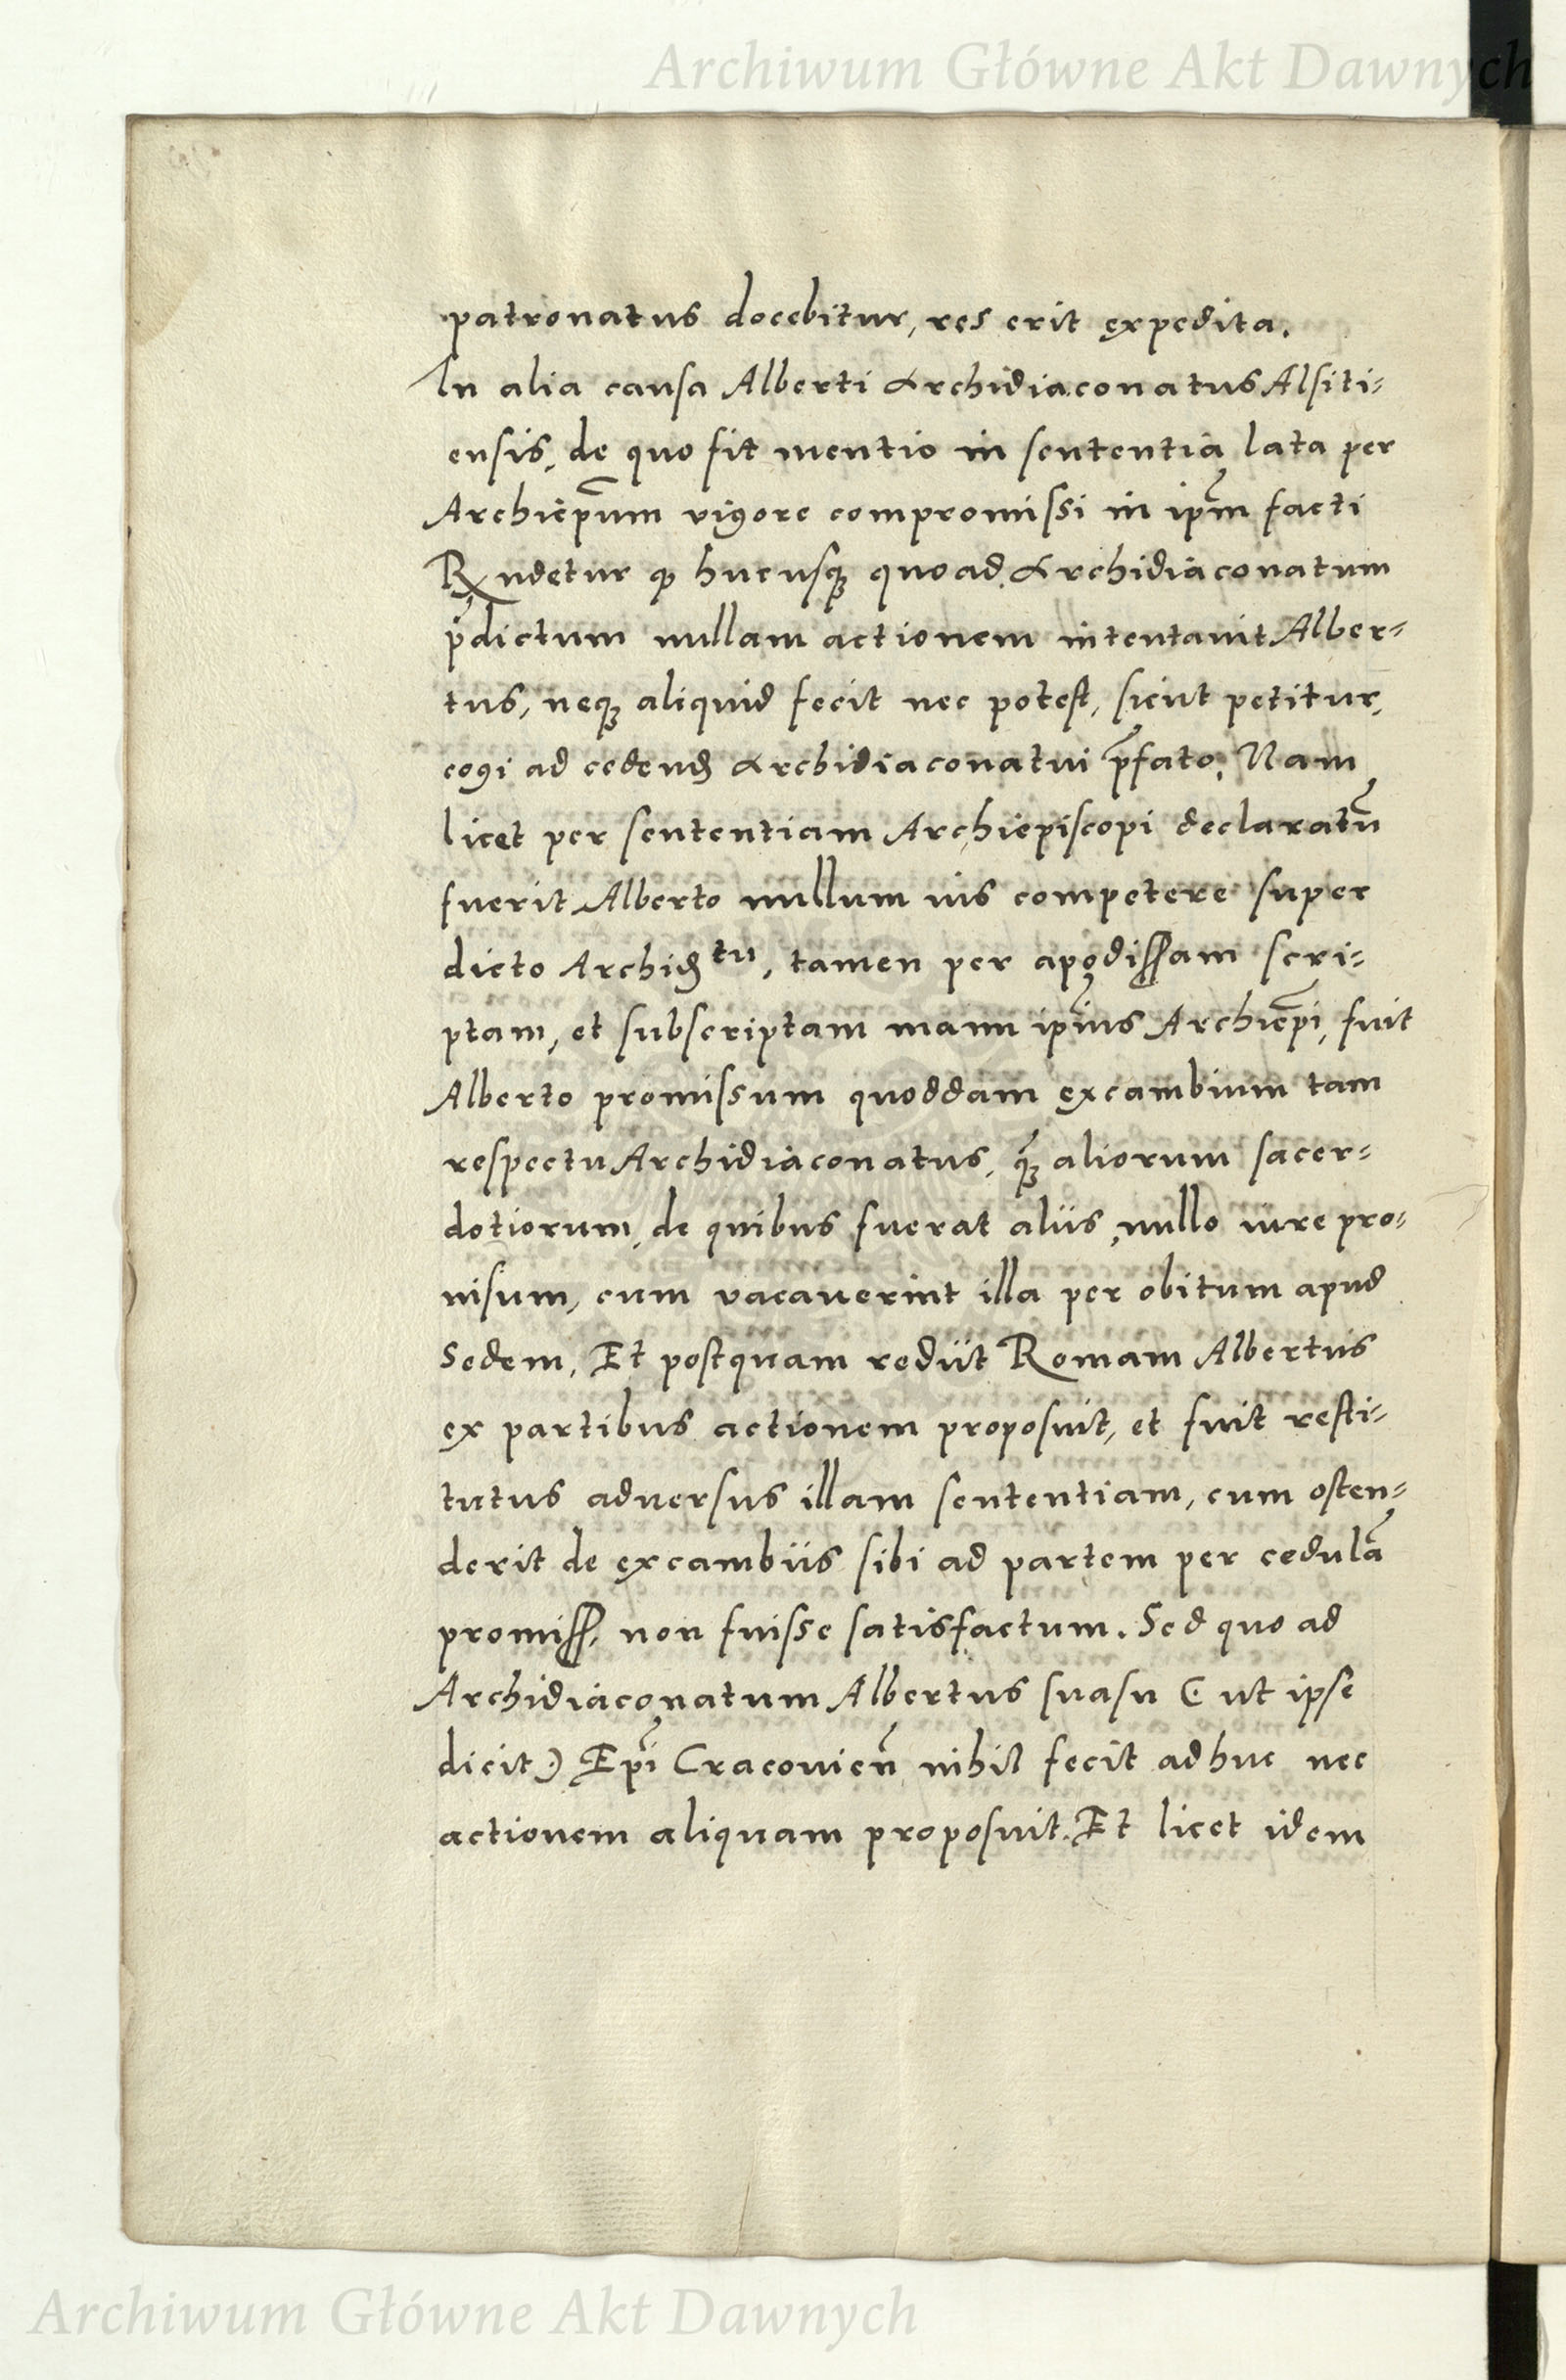 Archiwum Główne Akt Dawnych
patronatus docebitur, res erit expedita.
In alia causa Alberti Archidiaconatus Alsiti=
ensis, de quo fit mentio in sententia lata per
Archiep̃um vigore compromissi in ip̃m facti
Rñdetur ꝙ hucusqꝫ quoad Archidiaconatum
p̃dictum nullam actionem intentauit Alber=
tus, neqꝫ aliquid fecit nec potest, sicut petitur,
cogi ad cedendꝫ Archidiaconatui p̃fato. Nam
licet per sententiam Archiepiscopi declaratũ
fuerit Alberto nullum ius competere super
dicto Archidꝫtu, tamen per apodissam scri=
ptam, et subscriptam manu ip̃ius Archiep̃i, fuit
Alberto promissum quoddam excambium tam
respectu Archidiaconatus, q̃ꝫ aliorum sacer=
dotiorum, de quibus fuerat aliis, nullo iure pro=
uisum, cum vacauerint illa per obitum apud
Sedem. Et postquam rediit Romam Albertus
ex partibus actionem proposuit, et fuit resti=
tutus aduersus illam sententiam, cum osten=
derit de excambiis sibi ad partem per cedulã
promiss, non fuisse satisfactum. Sed quo ad
Archidiaconatum Albertus suasu (ut ipse
dicit) Ep̃i Cracouieñ nihil fecit adhuc nec
actionem aliquam proposuit. Et licet idem
Archiwum Główne Akt Dawnych